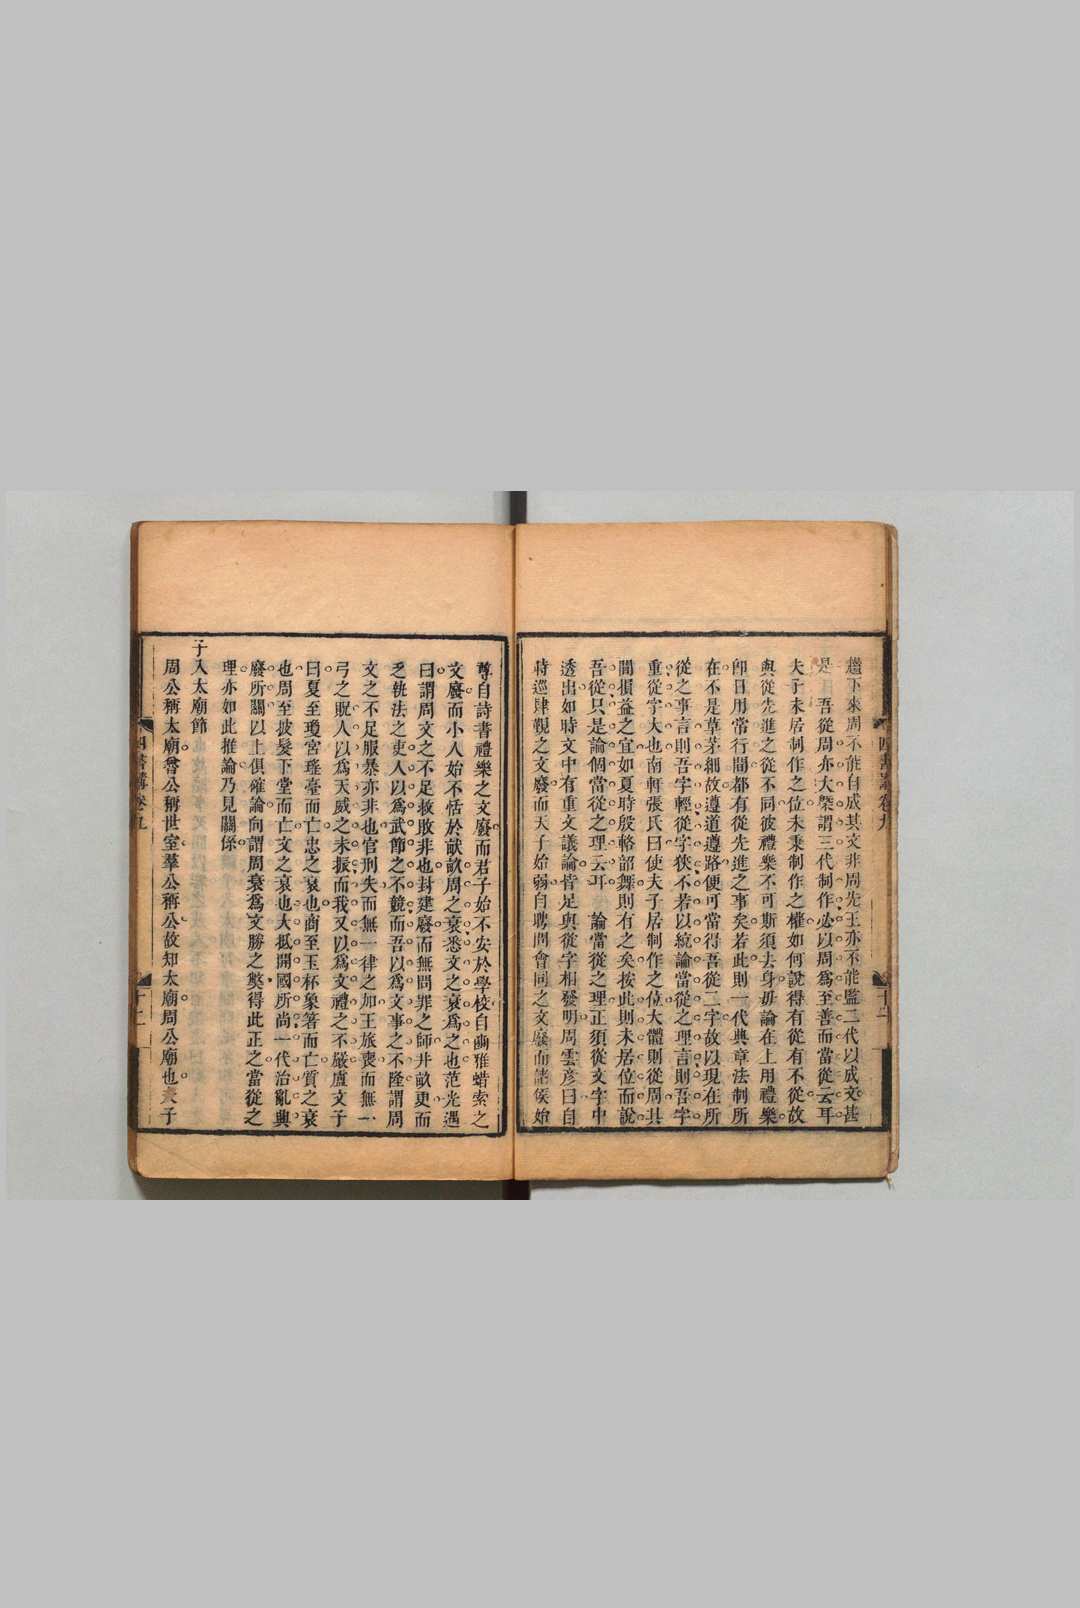 趨下來周不能自成其文非周先王亦不能監二代以成文甚
是吾從周亦大槩謂三代制作必以周爲至善而當從云耳
夫子未居制作之位未秉制作之權如何說得有從有不從故
與從先進之從不同彼禮樂不可斯須去身毋論在上用禮樂
卽日用常行間都有從先進之事矣若此則一代典章法制所
在不是草茅細故遵道遵路便可當得吾從二字故以現在所
從之事言則吾字輕從字狹不若以統論當從之理言則吾字
重從字大也南軒張氏曰使夫子居制作之位大體則從周其
間損益之宜如夏時殷輅韶舞則有之矣按此則未居位而說
吾從只是論個當從之理云耳 論當從之理正須從文字中
透出如時文中有重文議論皆足與從字相發明周雲彥曰自
時巡肆覲之文廢而天子始弱自聘問會同之文廢而諸侯始
四書講卷九
十二
尊自詩書禮樂之文廢而君子始不安於學校自豳雅蜡索之
文廢而小人始不恬於畎畝周之衰悉文之衰爲之也范光遇
曰謂周文之不足救敗非也封建廢而無問罪之師井畝更而
乏執法之吏人以爲武節之不競而吾以爲文事之不隆謂周
文之不足服暴亦非也官刑失而無一律之加王旅喪而無一
弓之貺人以爲天威之未振而我又以爲文禮之不嚴盧文子
曰夏至瓊宮瑤臺而亡忠之衰也商至玉杯象箸而亡質之衰
也周至披髮下堂而亡文之衰也大抵開國所尚一代治亂興
廢所關以上俱確論向謂周衰爲文勝之獘得此正之當從之
理亦如此推論乃見關係
子入太廟節
周公稱太廟魯公稱世室羣公稱公故知太廟周公廟也夫子
四書講卷九
十二